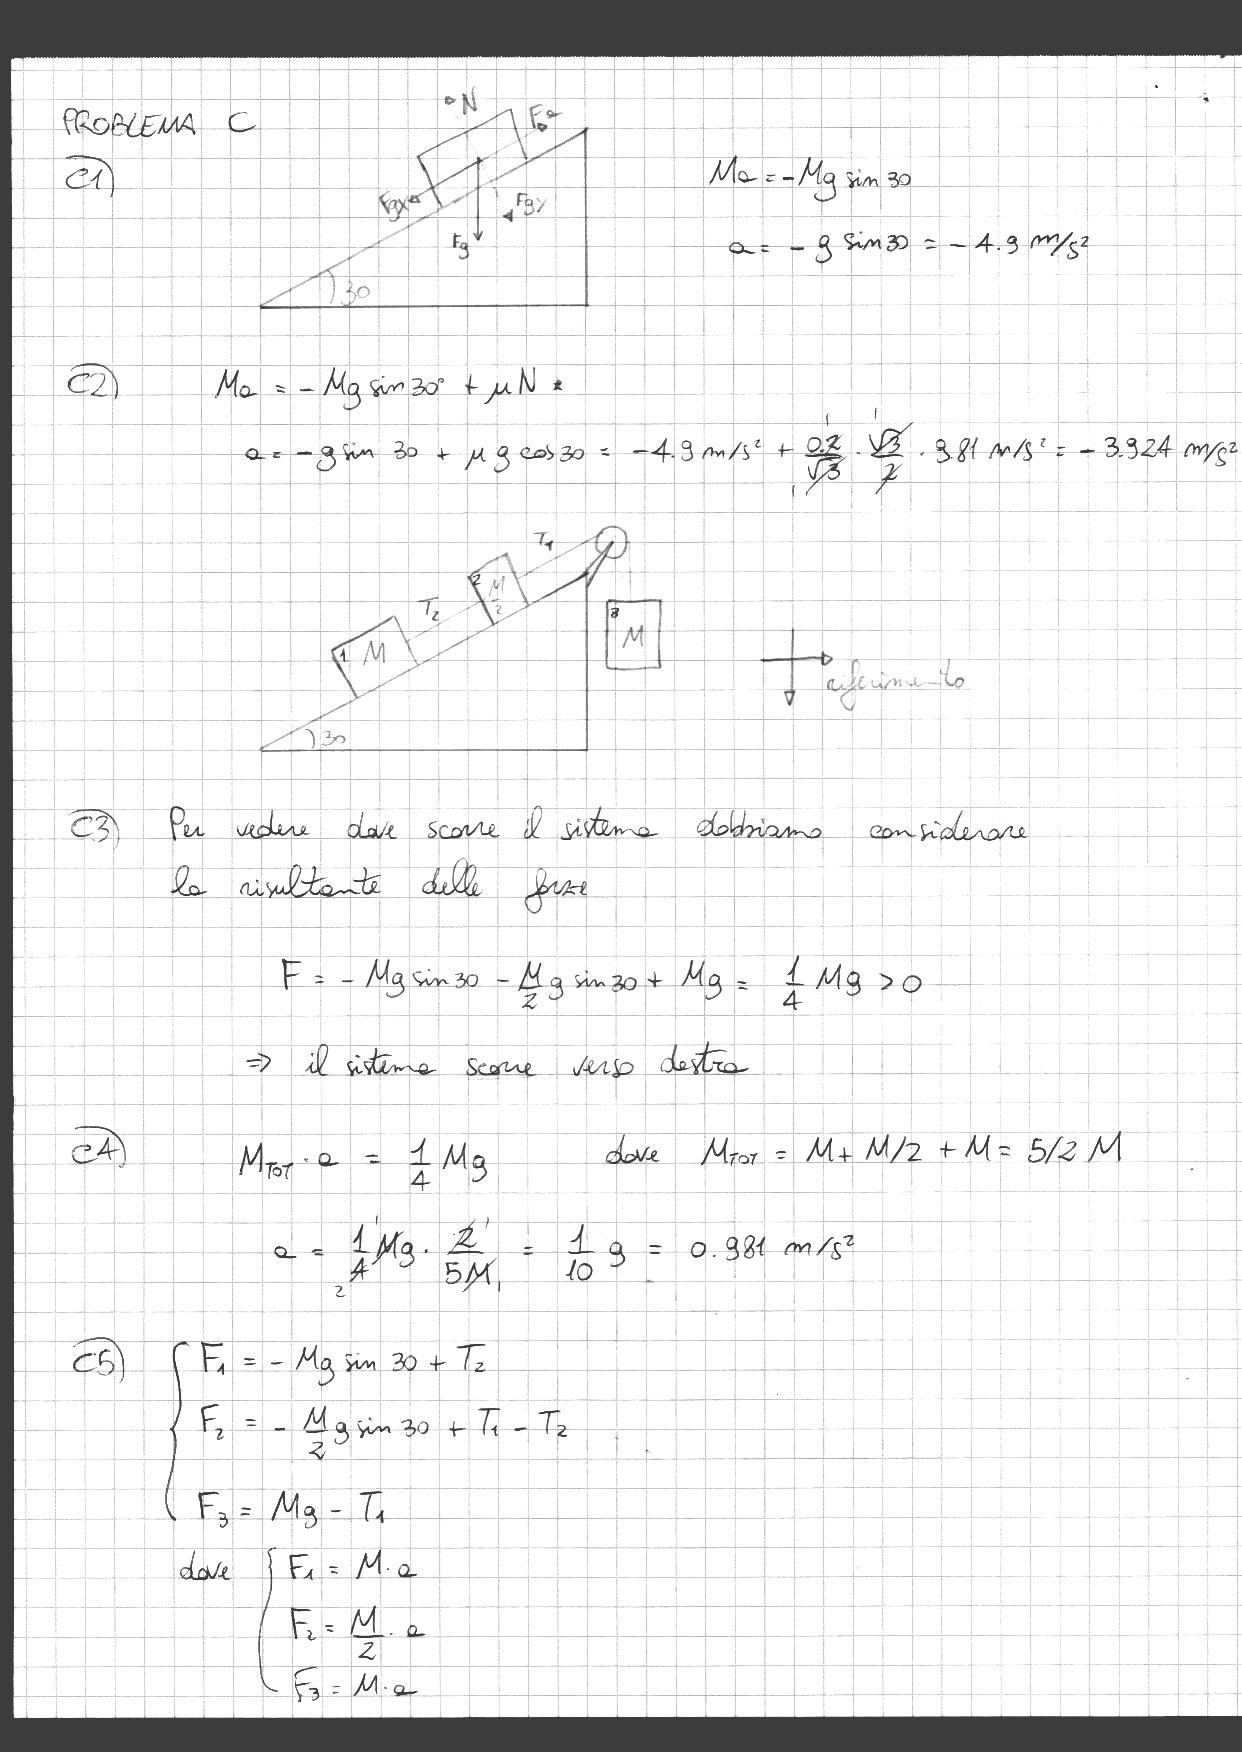 PROBLEMA C
C1)
N
Fa
Fgx
Fgy
Fg
30
Ma = - Mg sin 30
a = - g sin 30 = - 4.9 m/s²
C2) Ma = - Mg sin 30° + μN
a = - g sin 30 + μ g cos 30 = - 4.9 m/s² + 0.2/√3 · √3/2 · 9.81 m/s² = - 3.924 m/s²
T1
2 M/2
T2
1 M
3 M
30
riferimento
C3) Per vedere dove scorre il sistema dobbiamo considerare
la risultante delle forze
F = - Mg sin 30 - M/2 g sin 30 + Mg = 1/4 Mg > 0
⇒ il sistema scorre verso destra
C4) MTOT · a = 1/4 Mg dove MTOT = M + M/2 + M = 5/2 M
a = 1/4 Mg · 2/5M = 1/10 g = 0.981 m/s²
C5) F1 = - Mg sin 30 + T2
F2 = - M/2 g sin 30 + T1 - T2
F3 = Mg - T1
dove F1 = M · a
F2 = M/2 · a
F3 = M · a